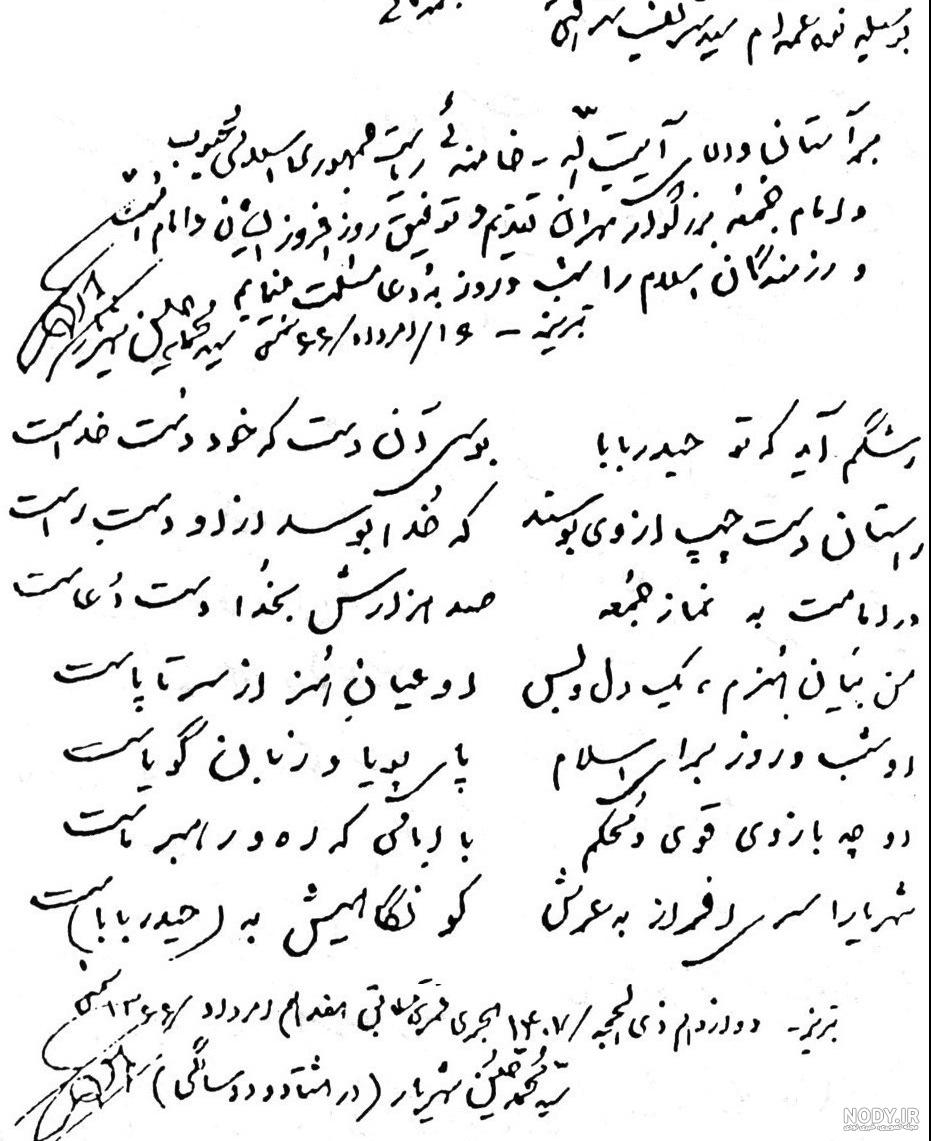 بوسیله نوه عمه ام سید
بر آستان والای آیت الله - خامنه ئی ریاست جمهوری اسلامی محبوب
و امام جمعه بزرگوار تهران تقدیم و توفیق روز افزون ایشان و امام امت
و رزمندگان اسلام را شب و روز به دعا مسئلت مینمایم
تبریز - ۱۶/امرداد/۶۶ شمسی سید محمد حسین شهریار
رشگم آید که تو حیدربابا بوسی آن دست که خود دست خداست
راستان دست چپ از وی بوسند که خدا بوسد از او دست راست
در امامت به نماز جمعه صد هزارش بخدا دست دعاست
من بیان هنرم، یک دل و بس او عیان هنر از سر تا پاست
او شب و روز برای اسلام پای پویا و زبان گویاست
او چه بازوی قوی و محکم با امامی که ره و رهبر ماست
شهریارا سری افراز به عرش کو نگاهیش به (حیدربابا) ست
تبریز - دوازدهم ذی الحجه /۱۴۰۷ هجری قمری هفدهم امرداد /۱۳۶۶ شمسی
سید محمد حسین شهریار (در هشتاد و دو سالگی)
NODY.IR